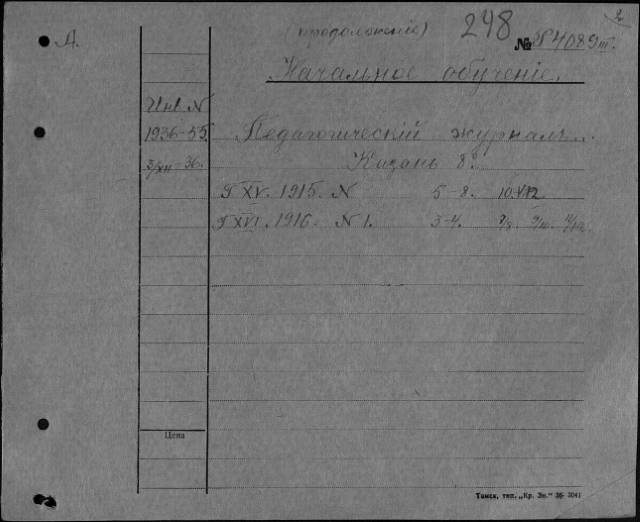 2
(продолженіе) 248
Д. № 4089
Начальное обученіе.
Инв. N
1936-55 Педагогическій журналъ..
3/XII-36. Казань 8º
Г XV. 1915. N 5-8. 10.
Г XVI. 1916. N 1. 3-4. 7/8. 9/10.
Цена
Томск, тип. „Кр. Зн." 36- 3041